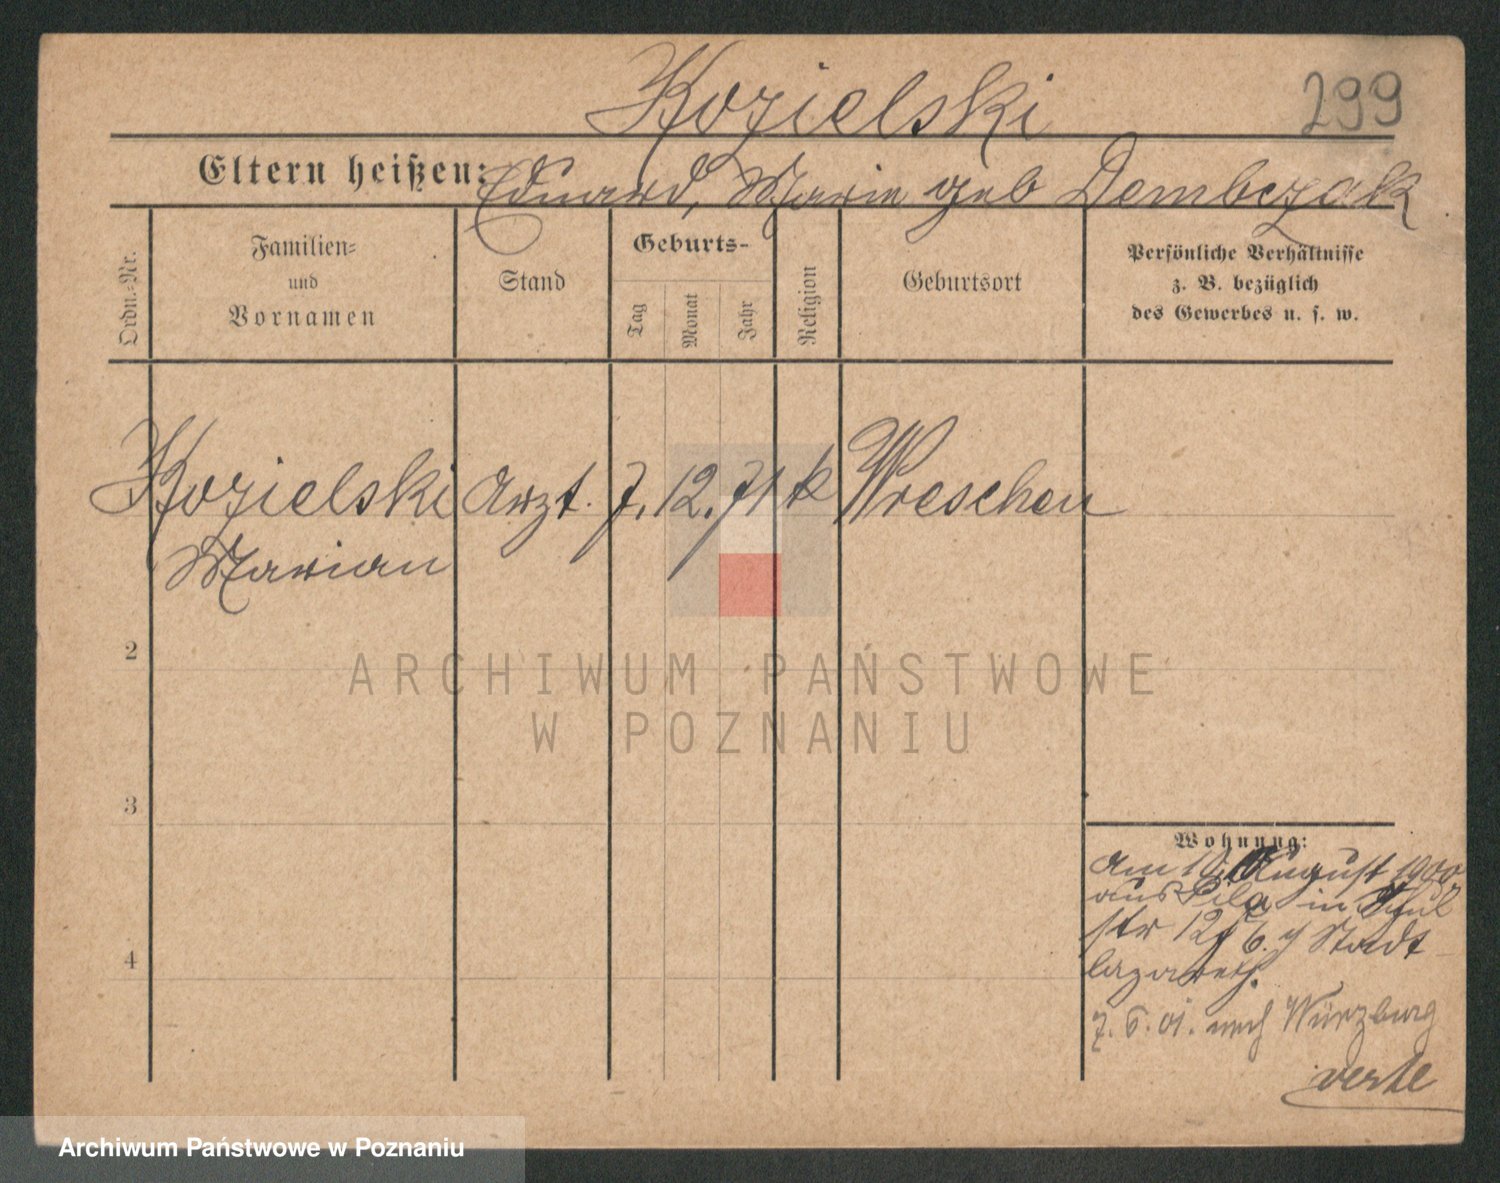 Kozielski
299
Eltern heißen: Eduard, Marie geb Dembczak
Ordn.-Nr.
Familien-
und
Vornamen
Stand
Geburts-
Tag
Monat
Jahr
Religion
Geburtsort
Persönliche Verhältnisse
z. B. bezüglich
des Gewerbes u. s. w.
Kozielski Arzt. 7. 12. 71 k Wreschen
Marian
2
3
4
Wohnung:
Am 10. August 1900
aus Pila in Schul
str 12 Stadt
lazareth.
7. 6. 01. nach Würzburg
verte
ARCHIWUM PAŃSTWOWE
W POZNANIU
Archiwum Państwowe w Poznaniu